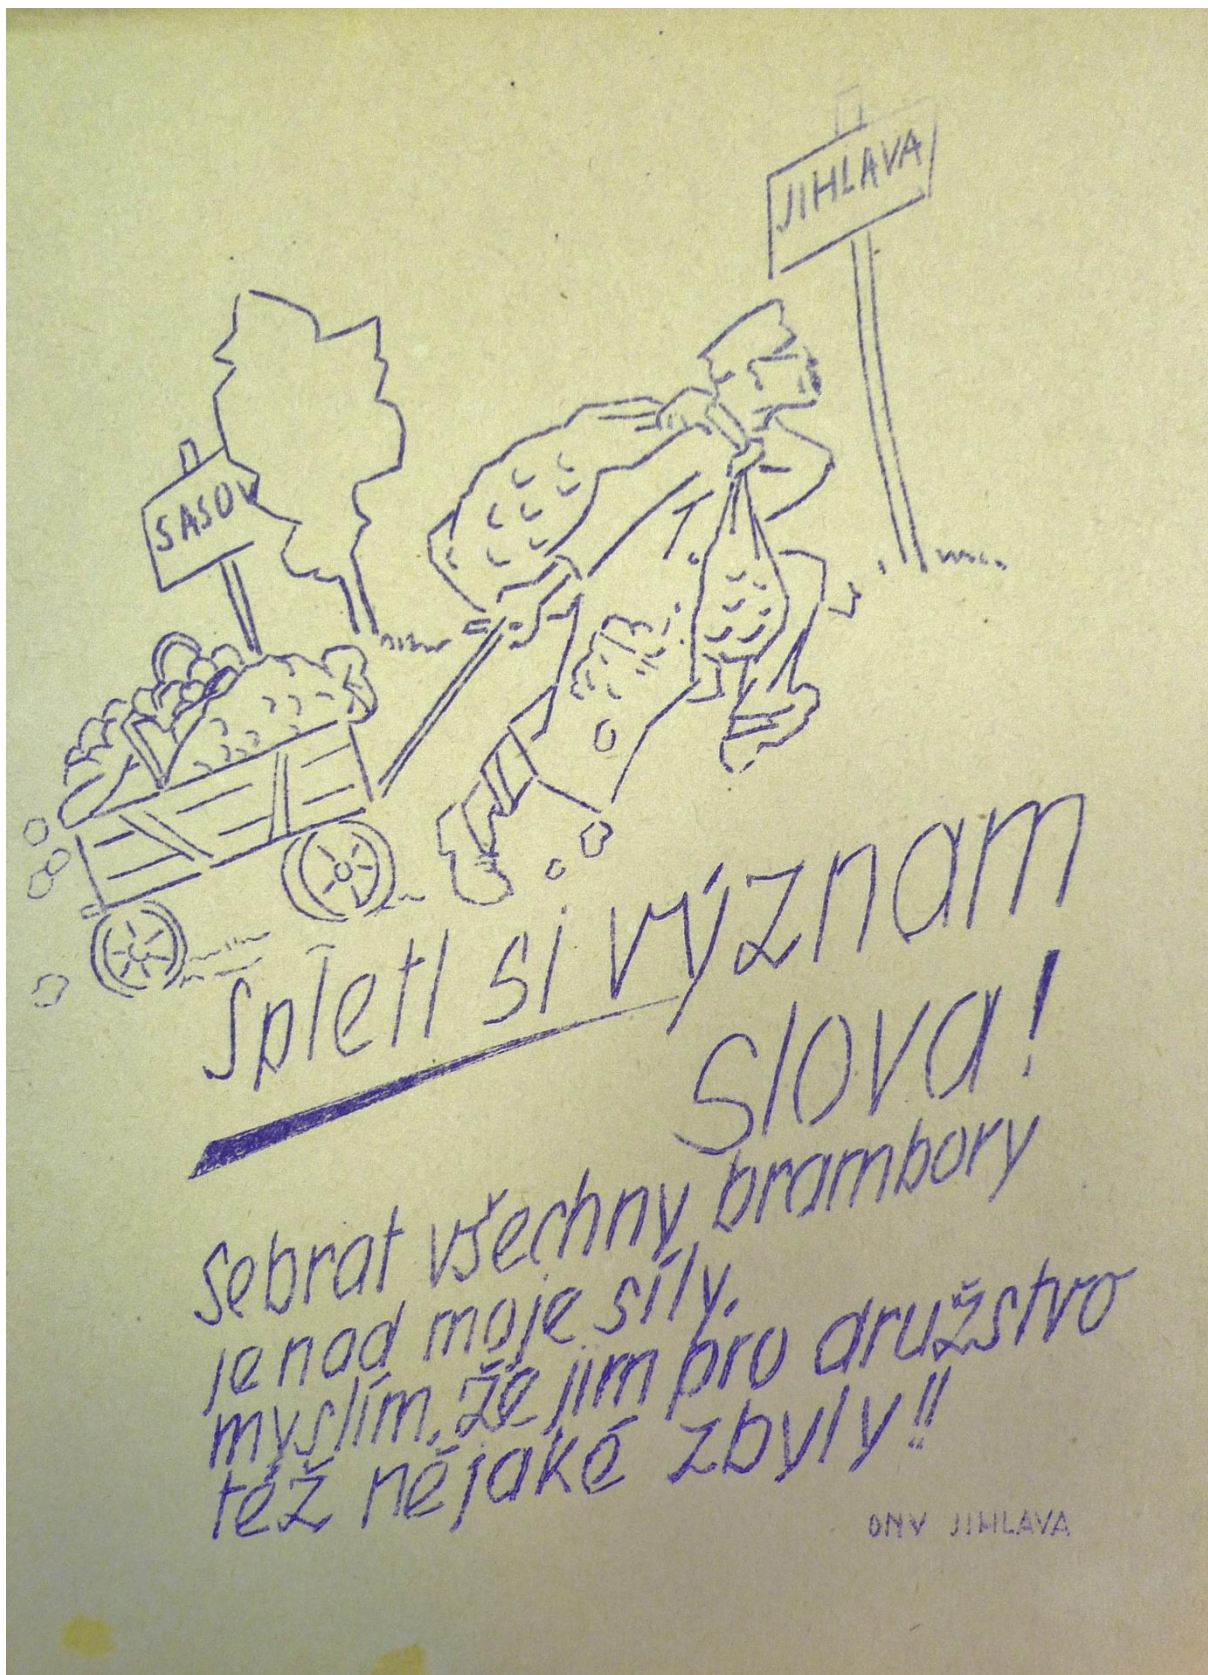 JIHLAVA
SASOV
Spletl si význam
slova!
Sebrat všechny brambory
je nad moje síly.
myslím, že jim pro družstvo
též nějaké zbyly!!
ONV JIHLAVA